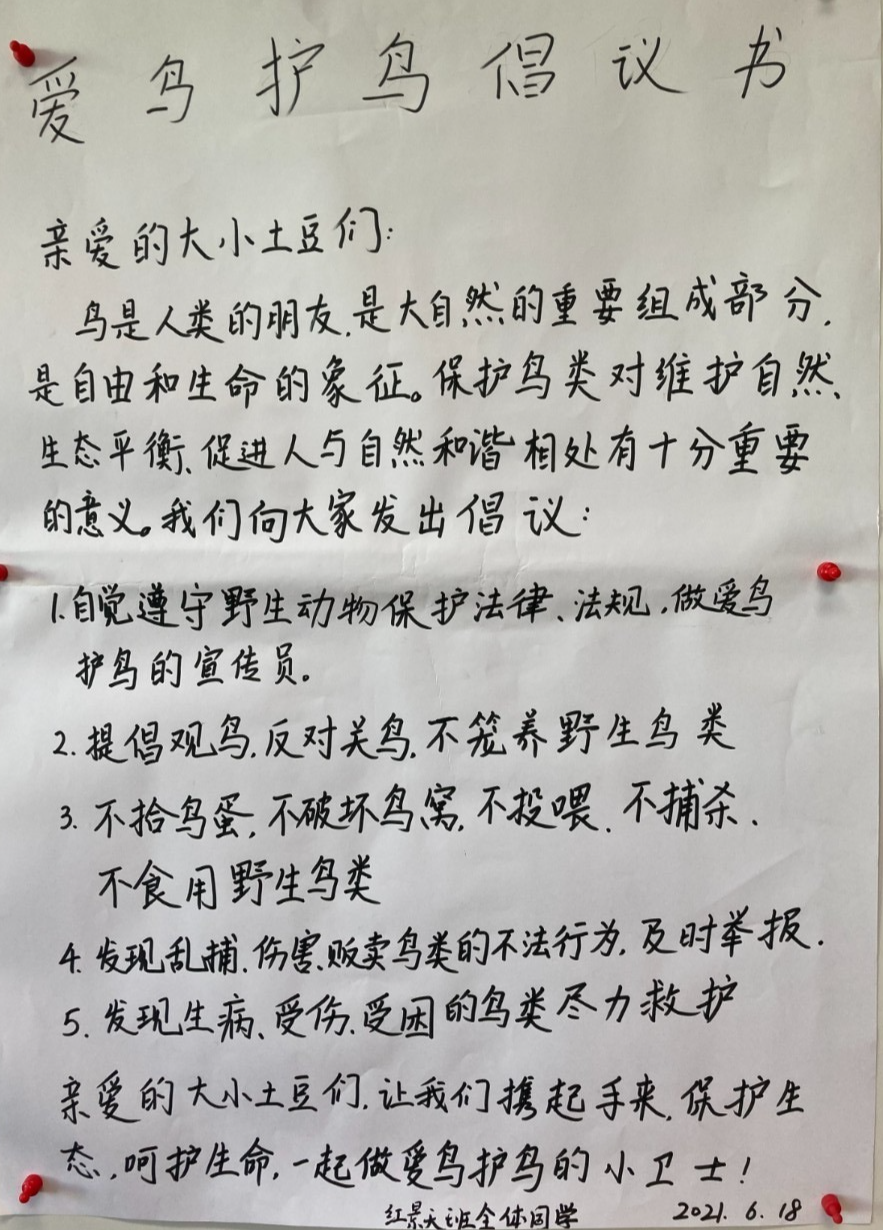 爱鸟护鸟倡议书
亲爱的大小土豆们:
鸟是人类的朋友,是大自然的重要组成部分,
是自由和生命的象征。保护鸟类对维护自然、
生态平衡、促进人与自然和谐相处有十分重要
的意义。我们向大家发出倡议:
1.自觉遵守野生动物保护法律、法规,做爱鸟
护鸟的宣传员。
2.提倡观鸟,反对关鸟,不笼养野生鸟类
3.不拾鸟蛋,不破坏鸟窝,不投喂、不捕杀、
不食用野生鸟类
4.发现乱捕、伤害、贩卖鸟类的不法行为,及时举报.
5.发现生病、受伤、受困的鸟类尽力救护
亲爱的大小土豆们,让我们携起手来,保护生
态,呵护生命,一起做爱鸟护鸟的小卫士!
红景天班全体同学 2021.6.18